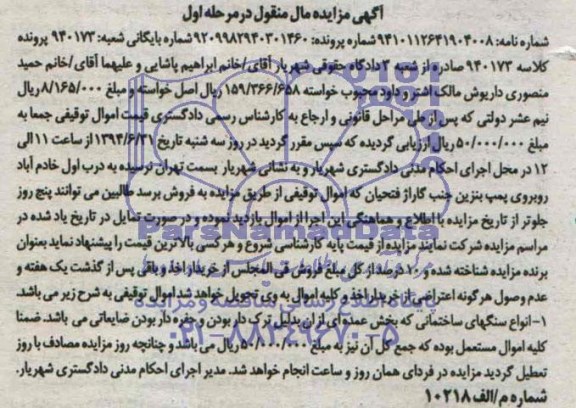 آگهی مزایده مال منقول در مرحله اول
شماره نامه: ۹۴۱۰۱۱۲۶۴۱۹۰۴۰۰۸ شماره پرونده: ۹۲۰۹۹۸۲۹۴۰۳۰۱۴۶۰ شماره بایگانی شعبه: ۹۴۰۱۷۳ پرونده
کلاسه ۹۴۰۱۷۳ صادره از شعبه ۳ دادگاه حقوقی شهریار آقای/خانم ابراهیم پاشایی و علیهما آقای/خانم حمید
منصوری داریوش مالک اشتر و داود محبوب خواسته ۱۵۹/۳۶۶/۶۵۸ ریال اصل خواسته و مبلغ ۸/۱۶۵/۰۰۰ ریال
نیم عشر دولتی که پس از طی مراحل قانونی و ارجاع به کارشناس رسمی دادگستری قیمت اموال توقیفی جمعا به
مبلغ ۵۰/۰۰۰/۰۰۰ ریال ارزیابی گردیده که سپس مقرر گردید در روز سه شنبه تاریخ ۱۳۹۴/۶/۳۱ از ساعت ۱۱ الی
۱۲ در محل اجرای احکام مدنی دادگستری شهریار و به نشانی شهریار بسمت تهران نرسیده به درب اول خادم آباد
روبروی پمپ بنزین جنب گاراژ فتحیان که اموال توقیفی از طریق مزایده به فروش برسد طالبین می توانند پنج روز
جلوتر از تاریخ مزایده با اطلاع و هماهنگی این اجرا از اموال بازدید نموده و در صورت تمایل در تاریخ یاد شده در
مراسم مزایده شرکت نمایند مزایده از قیمت پایه کارشناسی شروع و هر کسی بالاترین قیمت را پیشنهاد نماید بعنوان
برنده مزایده شناخته شده و ۱۰ درصد از کل مبلغ فروش فی المجلس از خریدار اخذ و باقی پس از گذشت یک هفته و
عدم وصول هرگونه اعتراضی از خریدار اخذ و کلیه اموال به وی تحویل خواهد شد اموال توقیفی به شرح زیر می باشد.
۱-انواع سنگهای ساختمانی که بخش عمده ای از آن بدلیل ترک دار بودن و حفره دار بودن ضایعاتی می باشد. ضمنا
کلیه اموال مستعمل بوده که جمع کل آن نیز به مبلغ ۵۰/۰۰۰/۰۰۰ ریال می باشد و چنانچه روز مزایده مصادف با روز
تعطیل گردید مزایده در فردای همان روز و ساعت انجام خواهد شد. مدیر اجرای احکام مدنی دادگستری شهریار.
شماره م/الف ۱۰۲۱۸
ParsNamadData
۰۲۱-۸۸۳۴۹۶۷۰-۵